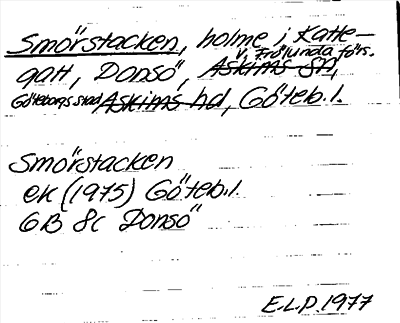 Smörstacken, holme i Katte-
V. Frölunda förs.
gatt, Donsö, Askims sn,
Göteborgs stad Askims hd, Göteb. l.
Smörstacken
ek (1975) Göteb. l.
6B 8c Donsö
E.L.P. 1977